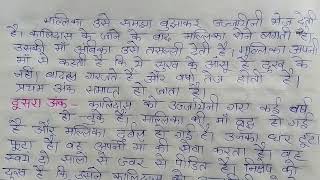 मल्लिका उसे समझा बुझाकर उज्जयिनी भेज देती
है। कालिदास के जाने के बाद मल्लिका रोने लगती है।
उसकी माँ अंबिका उसे तसल्ली देती है। मल्लिका अपनी
माँ से कहती है कि ये सुख के आँसू हैं, दुख के
नहीं। बादल गरजते हैं और वर्षा तेज होती है।
प्रथम अंक समाप्त हो जाता है।
दूसरा अंक- कालिदास को उज्जयिनी गए कई वर्ष
हो चुके हैं। मल्लिका की माँ वृद्ध हो गई
है और मल्लिका दुर्बल हो गई है। उनका घर टूटा
फूटा है। वह अपनी माँ की सेवा करता है। वह
स्वयं दो सालों से ज्वर से पीड़ित है। निक्षेप को
दुख है कि उसने कालिदास को